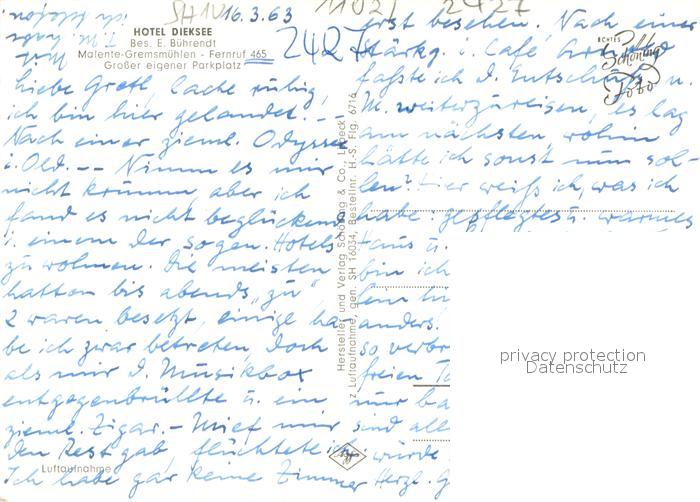 SH1U 16.3.63
1102/ 2427
HOTEL DIEKSEE
Bes. E. Bührendt
Malente-Gremsmühlen - Fernruf 465
Großer eigener Parkplatz
2427
ECHTES
Schöning
Foto
Liebe Gretl, lache ruhig,
ich bin hier gelandet. -
Nach einer zieml. Odyssee
i. Old. -- Nimm es mir
nicht krumm, aber ich
fand es nicht beglückend
i. einem der sogen. Hotels
zu wohnen. Die meisten
hatten bis abends "zu"
2 waren besetzt, einige ha-
be ich zwar betreten, doch
als mir d. Musikbox
entgegenbrüllte u. ein
zieml. Zigar.-Mief mir
den Rest gab, flüchtete ich
Ich habe gar keine Zimmer
erst besehen. Nach einer
Stärkg. i. Café
faßte ich d. Entschluß n.
M. weiterzureisen, es lag
am nächsten, wohin
hätte ich sonst nun sol-
len? Hier weiß ich, was ich
habe: gepflegtes u. warmes
Haus u.
bin ich
anders.
so verbr
freien
nur ba
sind all
würde
Herzl. G
Luftaufnahme
Hersteller und Verlag Schöning & Co., Lübeck
z Luftaufnahme, gen. SH 16034, Bestellnr. H.-S. Fig. 6716
privacy protection
Datenschutz